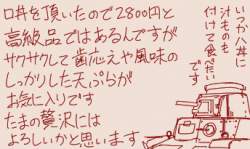 口丼を頂いたので2800円と
高級品ではあるんですが
サクサクして歯応えや風味の
しっかりした天ぷらが
お気に入りです
たまの贅沢には
よろしいかと思います
汁ものも
付けて食べたい
です